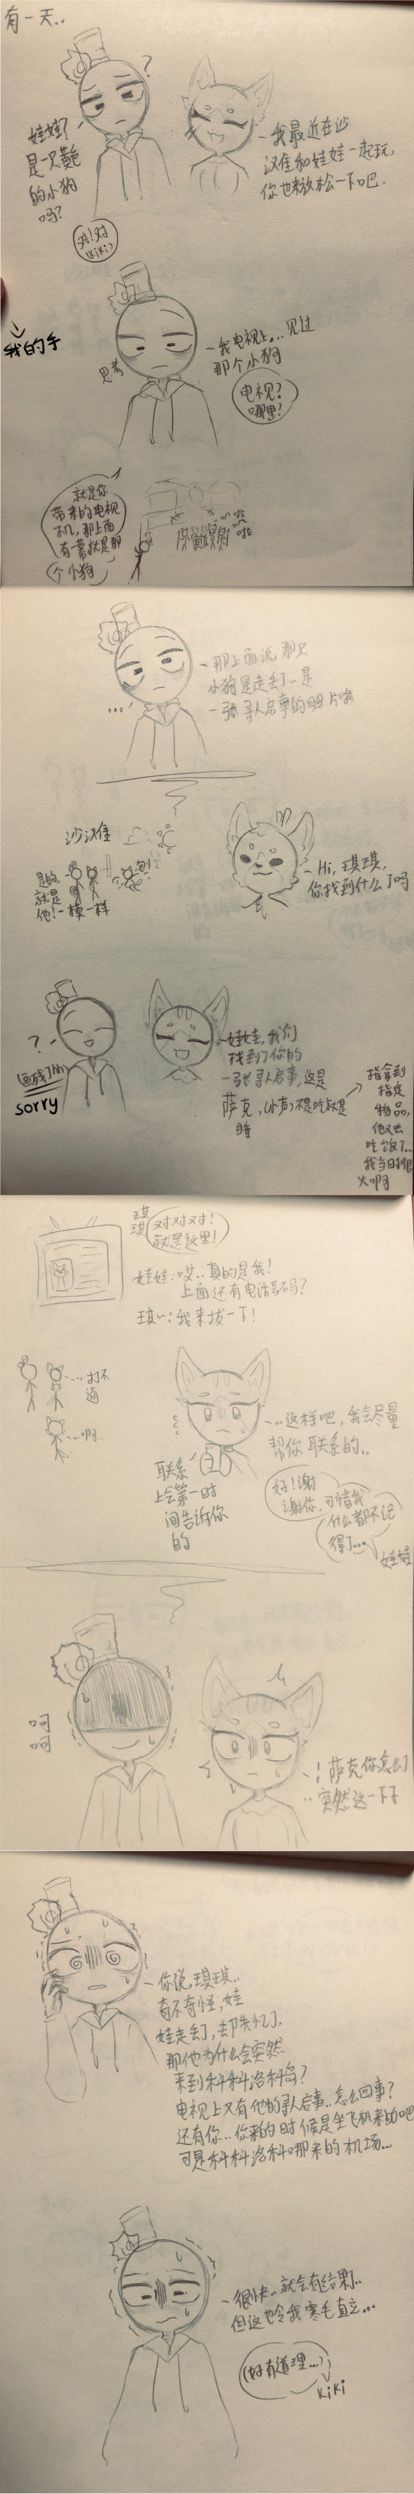 有一天..
?
娃娃?
是一只黄色
的小狗
吗?
我最近在沙
汉堡和娃娃一起玩,
你也来放松一下吧.
对!对
(kiki)
我的手
思考
我电视上....见过
那个小狗
电视?
哪里?
就是你
带来的电视
机,那上面
有一篇就是那
个小狗
那上面说,那只
小狗是走丢了..是
一张寻人启事的照片哦
...
沙汉堡
是的,
就是
他!
一模一样
刨
Hi,琪琪,
你找到什么了吗
?
sorry
娃娃,我们
找到了你的
一张寻人启事,这是
萨克,(小声)不是吃就是
睡
指拿到
指定
物品,
他又去
吃饭了..
我当时很
火啊
琪
琪
对对对!
就是这里!
娃娃:哎..真的是我!
上面还有电话号码?
琪琪:我来拨一下!
...打不
通
...啊..
..这样吧,我会尽量
帮你联系的..
联系
上会第一时
间告诉你
的
好!谢
谢你,可惜我
什么都不记
得了...
娃娃
呵
呵
!萨克你怎么了
突然这一下子
你说,琪琪..
奇不奇怪,娃
娃走丢了,却失忆了,
那他为什么会突然
来到科科洛科岛?
电视上又有他的寻人启事..怎么回事?
还有你..你来的时候是坐飞机来的吧
可是科科洛科哪来的机场...
很快..就会有结果了..
但这也令我寒毛直立...
(好有道理...)
kiki